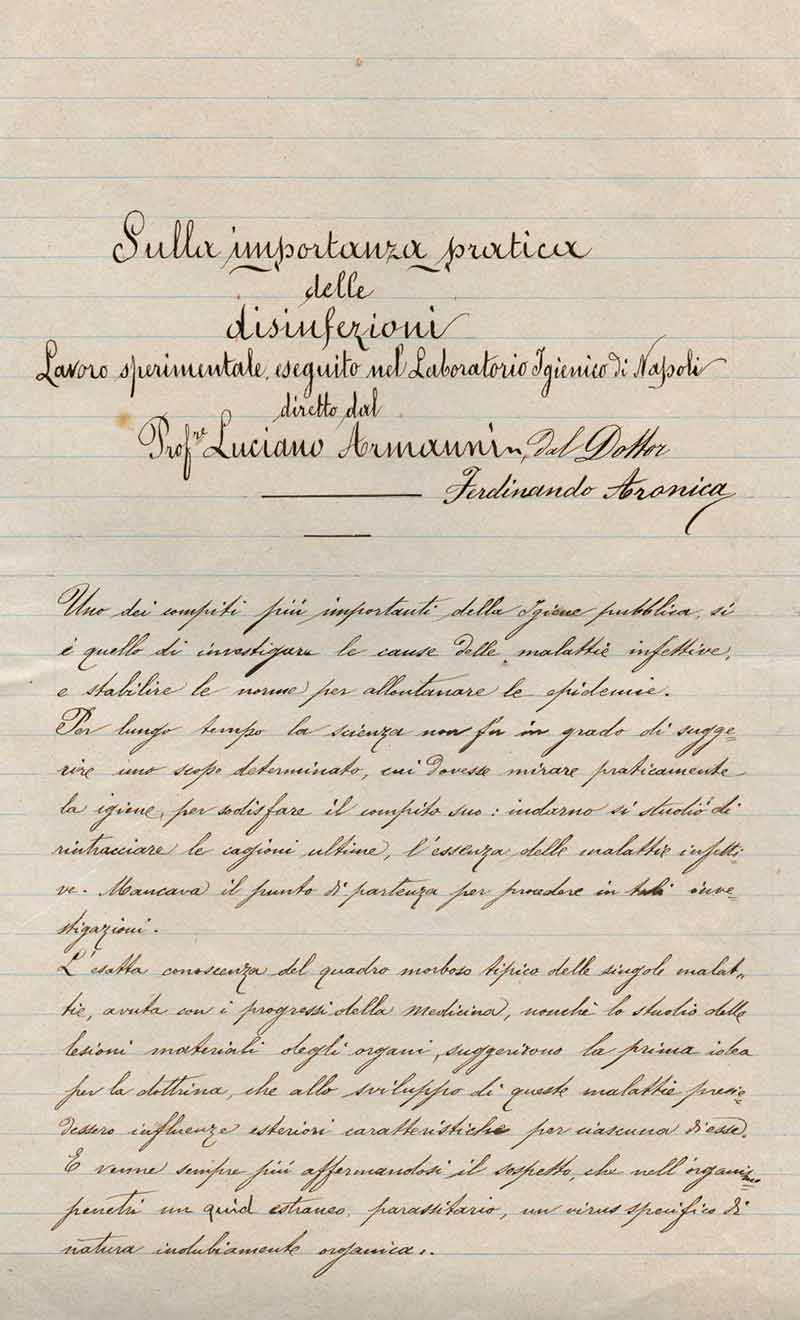 Sulla importanza pratica
delle
disinfezioni
Lavoro sperimentale, eseguito nel Laboratorio Igienico di Napoli
diretto dal
Prof.re Luciano Armanni, dal Dottor
Ferdinando Aronica
Uno dei compiti più importanti della Igiene pubblica, si
è quello di investigare le cause delle malattie infettive,
e stabilire le norme per allontanare le epidemie.
Per lungo tempo la scienza non fu in grado di sugge=
rire uno scopo determinato, cui dovesse mirare praticamente
la igiene, per sodisfare il compito suo: indarno si studiò di
rintracciare le cagioni ultime, l'essenza delle malattie infetti=
ve. Mancava il punto di partenza per procedere in tali inve=
stigazioni.
L'esatta conoscenza del quadro morboso tipico delle singole malat=
tie, avuta con i progressi della Medicina, nonchè lo studio delle
lesioni materiali degli organi, suggerirono la prima idea
per la dottrina, che allo sviluppo di queste malattie presie=
dessero influenze esteriori caratteristiche per ciascuna di esse.
E venne sempre più affermandosi il sospetto, che nell'organismo
penetri un quid estraneo, parassitario, un virus specifico di
natura indubiamente organica.